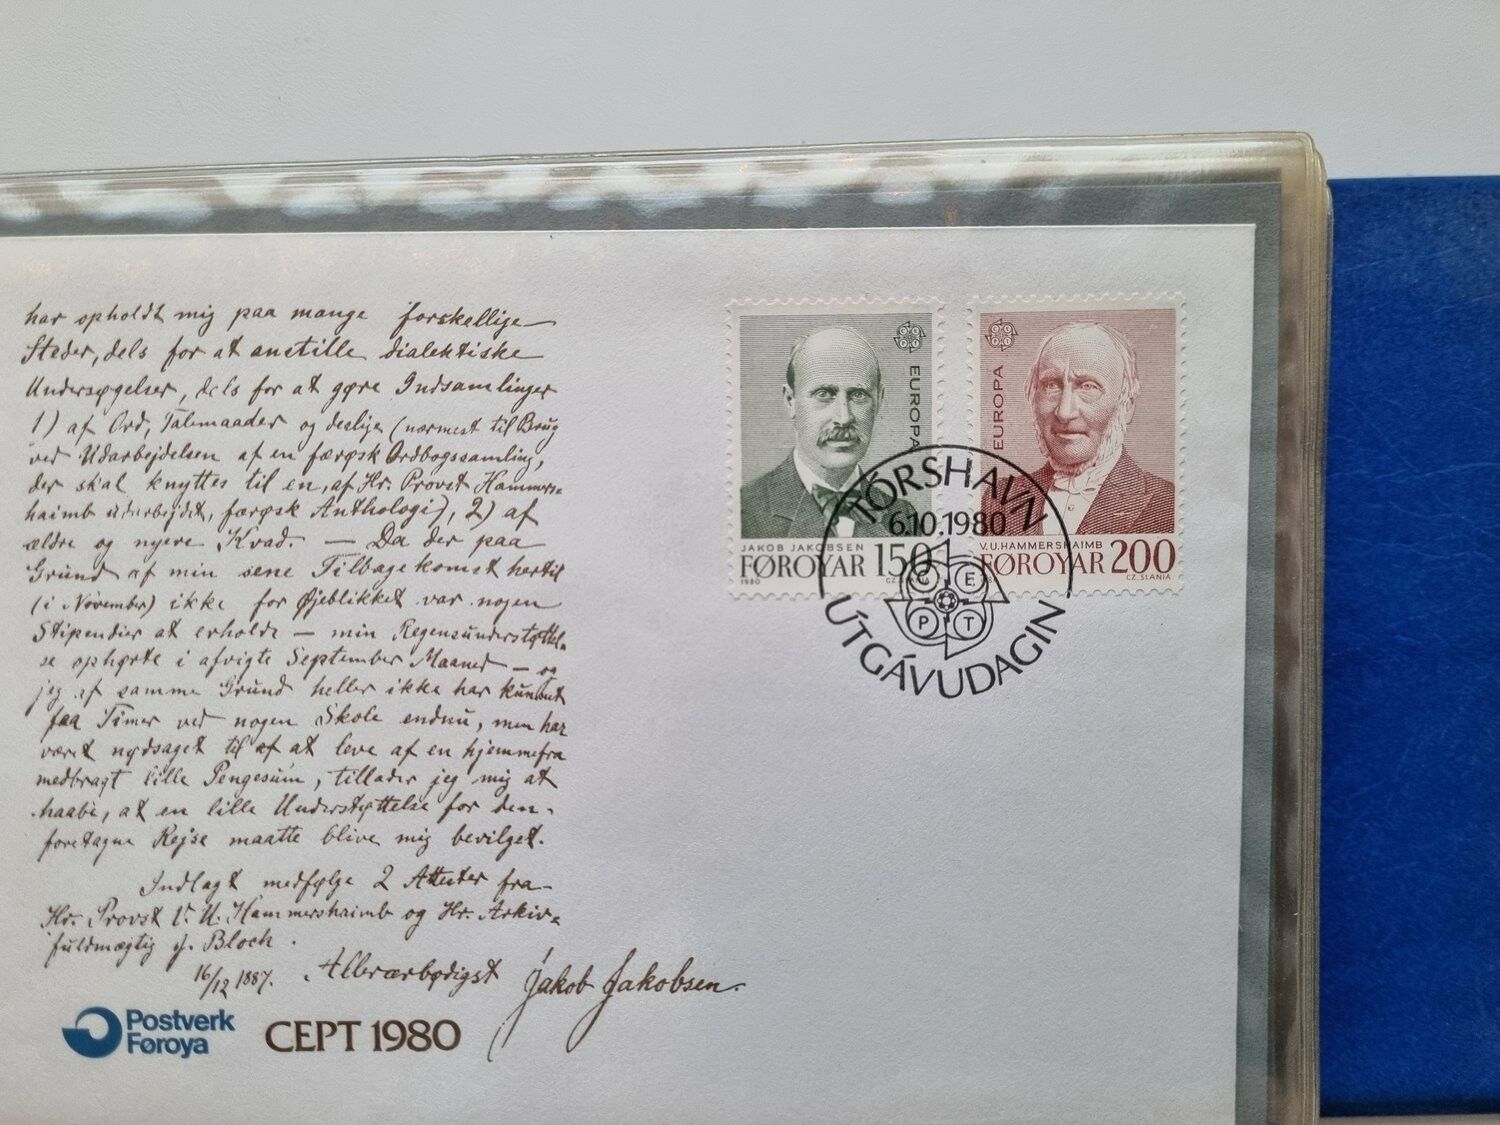 har opholdt mig paa mange forskellige
Steder, dels for at anstille dialektiske
Undersøgelser, dels for at gøre Indsamlinger
1) af Ord, Talemaader og deslige (nærmest til Brug
ved Udarbejdelsen af en færøsk Ordbogssamling,
der skal knyttes til en, af Hr. Provst Hammers-
haimb udarbejdet, færøsk Anthologi), 2) af
ældre og nyere Kvad. — Da der paa
Grund af min sene Tilbagekomst hertil
(i November) ikke for Øjeblikket var nogen
Stipendier at erholde — min Regensunderstøttel-
se ophørte i afvigte September Maaned — og
jeg af samme Grund heller ikke har kunnet
faa Timer ved nogen Skole endnu, men har
været nødsaget til af at leve af en hjemmefra
medbragt lille Pengesum, tillader jeg mig at
haabe, at en lille Understøttelse for den
foretagne Rejse maatte blive mig bevilget.
Indlagt medfølge 2 Attester fra
Hr. Provst V. U. Hammershaimb og Hr. Arkiv-
fuldmægtig J. Bloch.
16/12 1887. Allerærbødigst Jakob Jakobsen.
Postverk
Føroya
CEPT 1980
CEPT
EUROPA
JAKOB JAKOBSEN
FØROYAR 150
1980
CZ.
CEPT
EUROPA
V.U.HAMMERSHAIMB
FØROYAR 200
CZ. SLANIA
TÓRSHAVN
6.10.1980
CEPT
ÚTGÁVUDAGIN